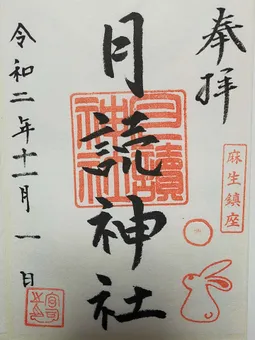 奉拝
麻生鎮座
月読神社
月讀神社
令和二年十一月一日